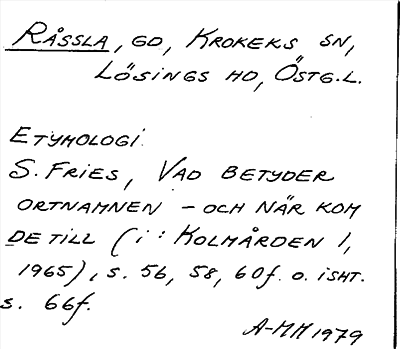 RÅSSLA, GD, KROKEKS SN,
LÖSINGS HD, ÖSTG.L.
ETYMOLOGI
S. FRIES, VAD BETYDER
ORTNAMNEN – OCH NÄR KOM
DE TILL (i: KOLMÅRDEN 1,
1965), s. 56, 58, 60f. o. iSHT.
s. 66f.
A-MM 1979